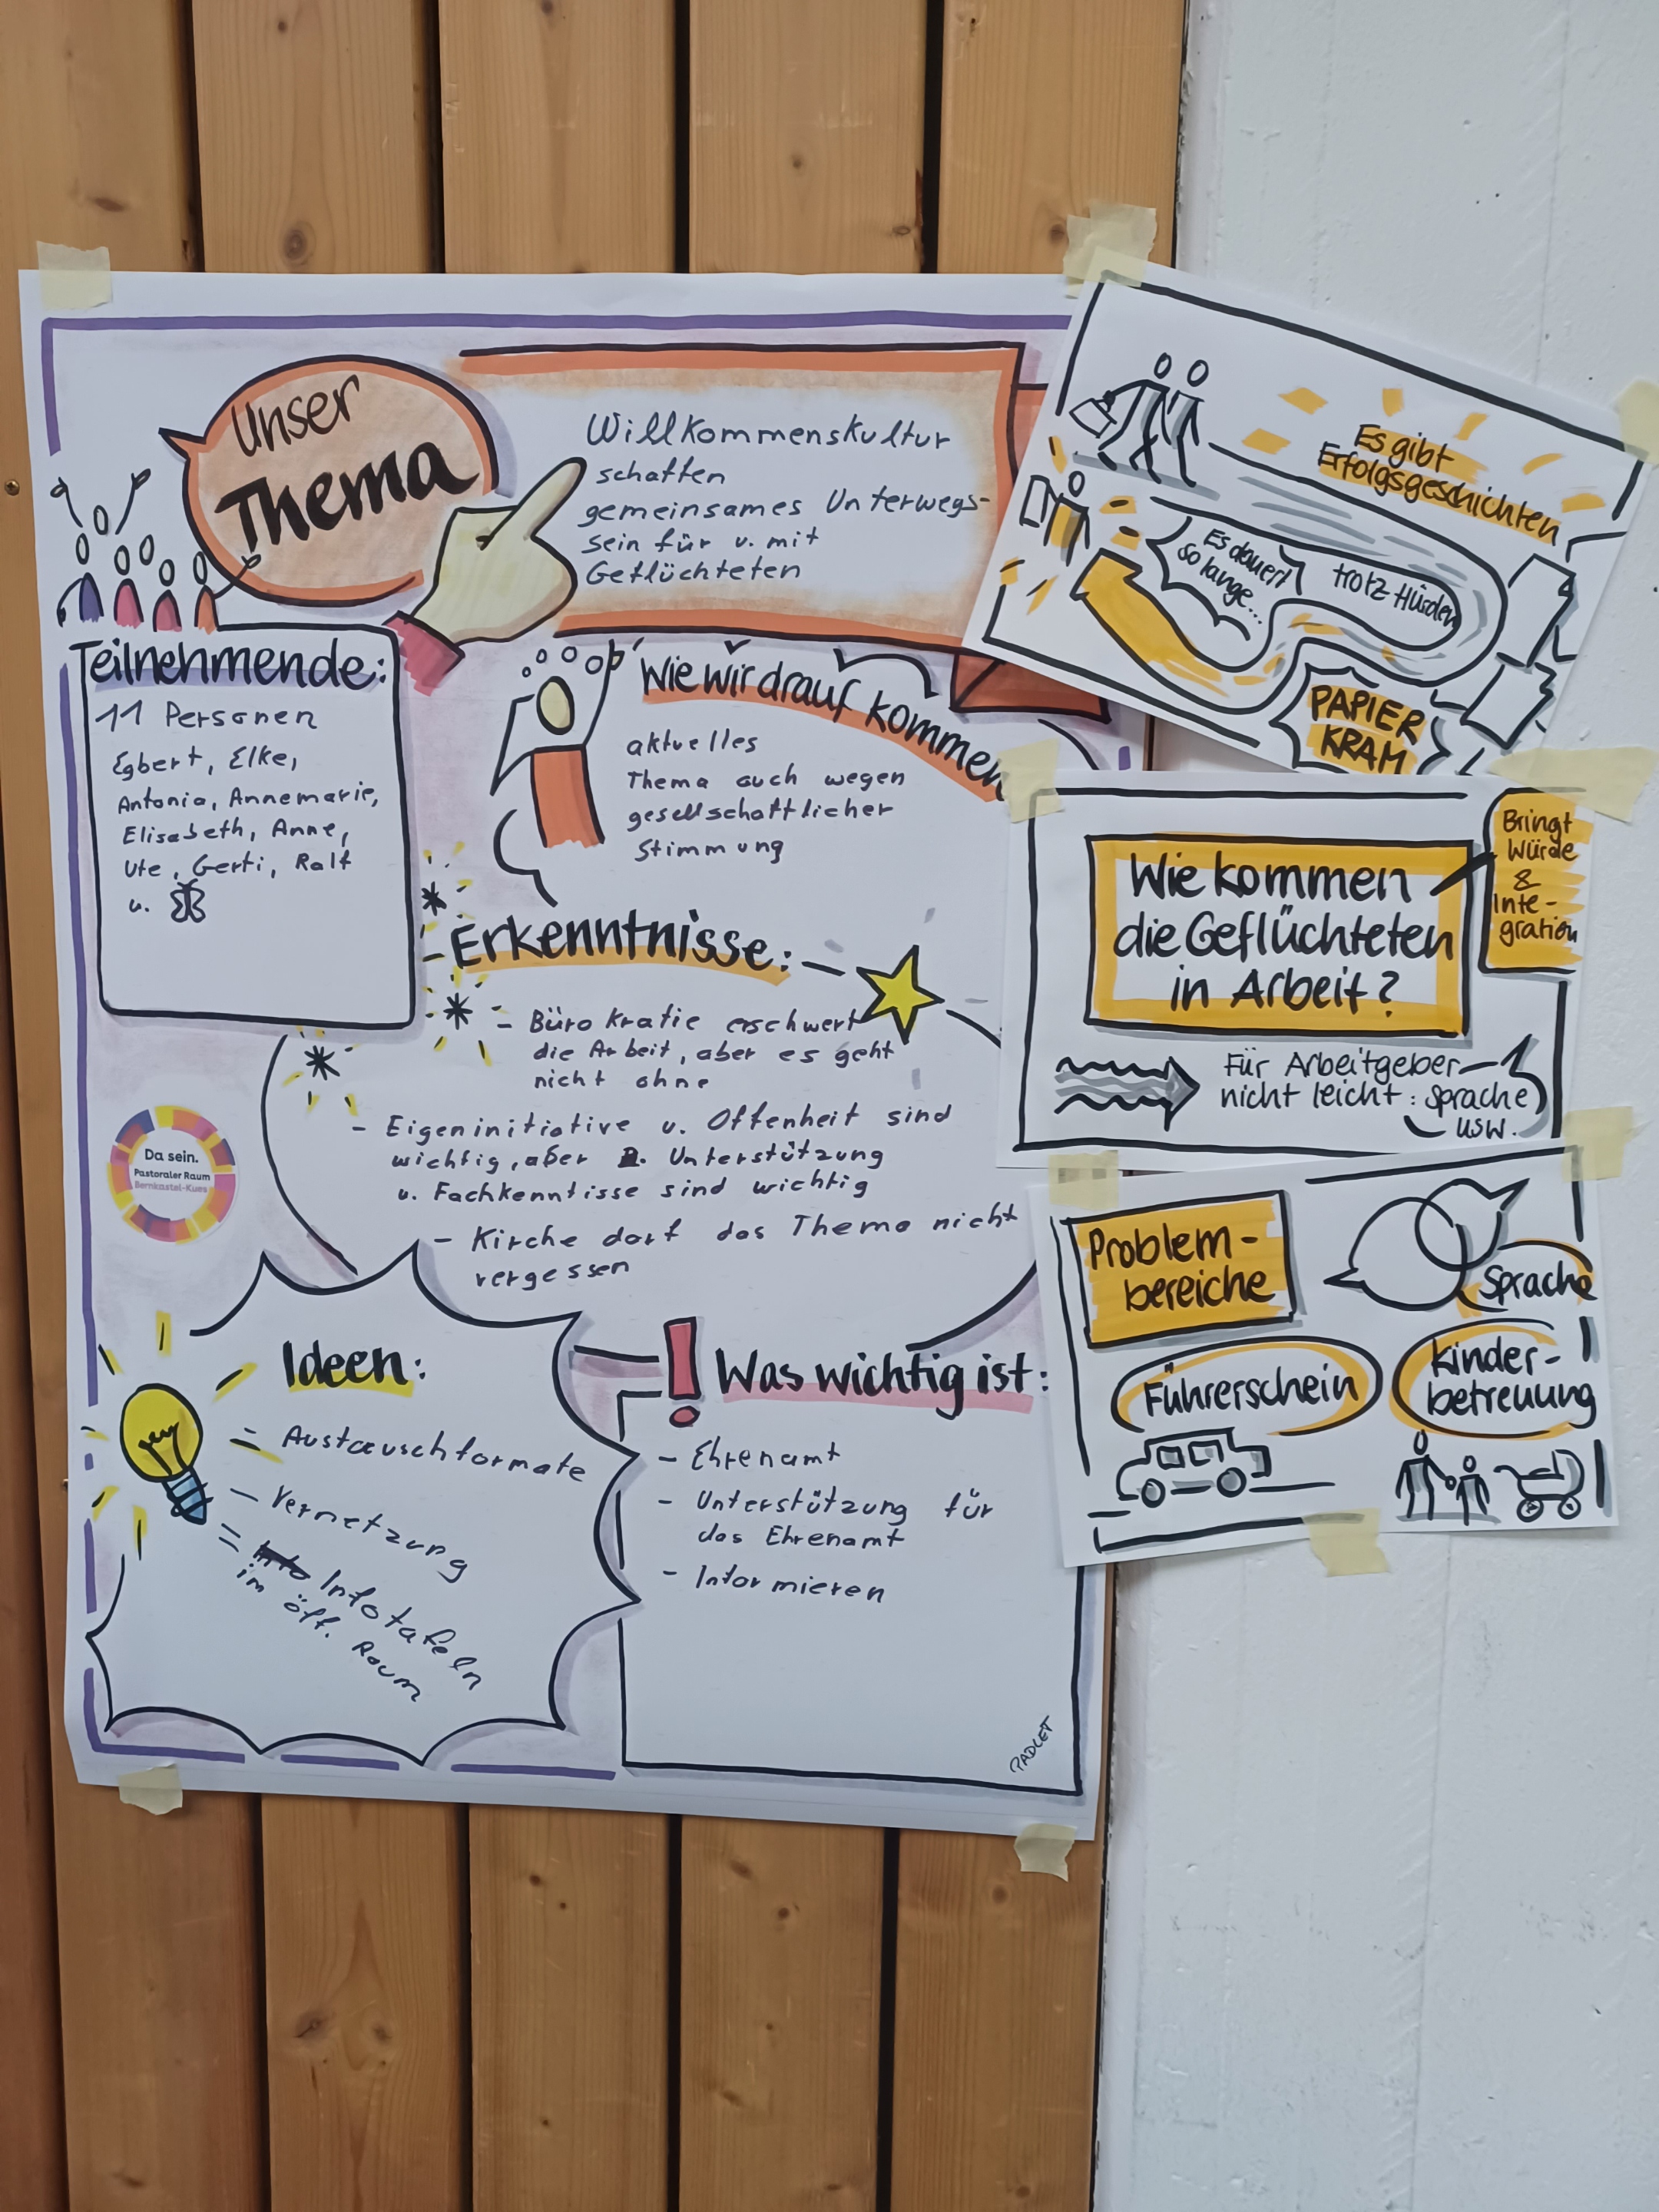 Unser
Thema
Willkommenskultur
schaffen
gemeinsames Unterwegs-
sein für u. mit
Geflüchteten
Teilnehmende:
11 Personen
Egbert, Elke,
Antonia, Annemarie,
Elisabeth, Anne,
Ute, Gerti, Ralf
u.
Wie wir drauf kommen
aktuelles
Thema auch wegen
gesellschaftlicher
Stimmung
Erkenntnisse:
- Bürokratie erschwert
die Arbeit, aber es geht
nicht ohne
- Eigeninitiative u. Offenheit sind
wichtig, aber Unterstützung
u. Fachkenntisse sind wichtig
- Kirche darf das Thema nicht
vergessen
Da sein.
Pastoraler Raum
Bernkastel-Kues
Ideen:
- Austauschformate
- Vernetzung
- Infotafeln
im öff. Raum
Was wichtig ist:
- Ehrenamt
- Unterstützung für
das Ehrenamt
- Informieren
PADLET
Es gibt
Erfolgsgeschichten
Es dauert
so lange...
trotz Hürden
PAPIER
KRAM
Wie kommen
die Geflüchteten
in Arbeit?
Bringt
Würde
&
Inte-
gration
Für Arbeitgeber
nicht leicht: Sprache
usw.
Problem-
bereiche
Sprache
Führerschein
Kinder-
betreuung